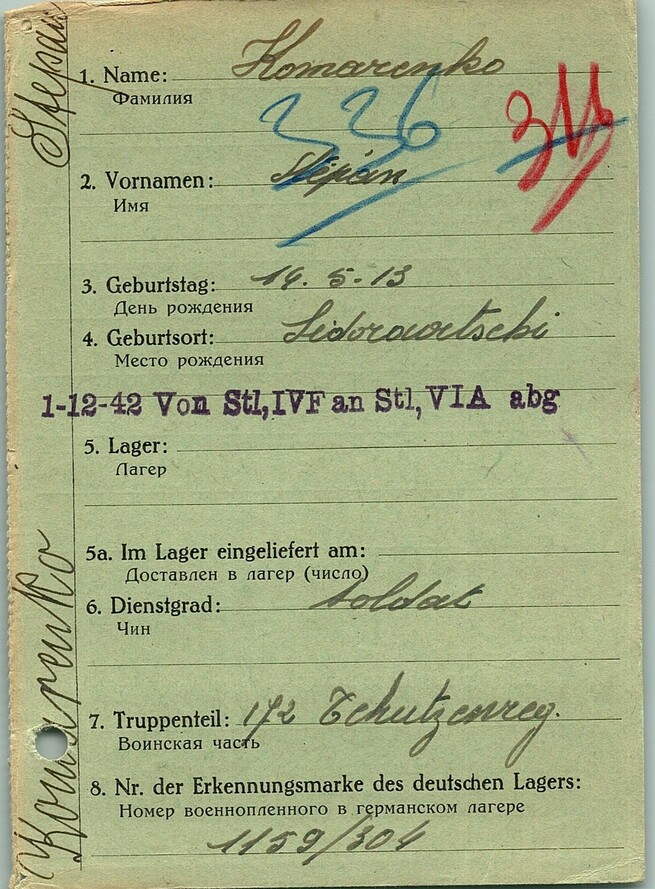 Stepan
1. Name: Komarenko
Фамилия
336
2. Vornamen: Stepan
Имя
3. Geburtstag: 14. 5-13
День рождения
4. Geburtsort:
Место рождения
1-12-42 Von Stl, IVF an Stl, VIA abg
5. Lager:
Лагерь
5a. Im Lager eingeliefert am:
Доставлен в лагерь (число)
6. Dienstgrad: soldat
Чин
7. Truppenteil: 172
Воинская часть
8. Nr. der Erkennungsmarke des deutschen Lagers:
Номер военнопленного в германском лагере
1159/304
Komarenko